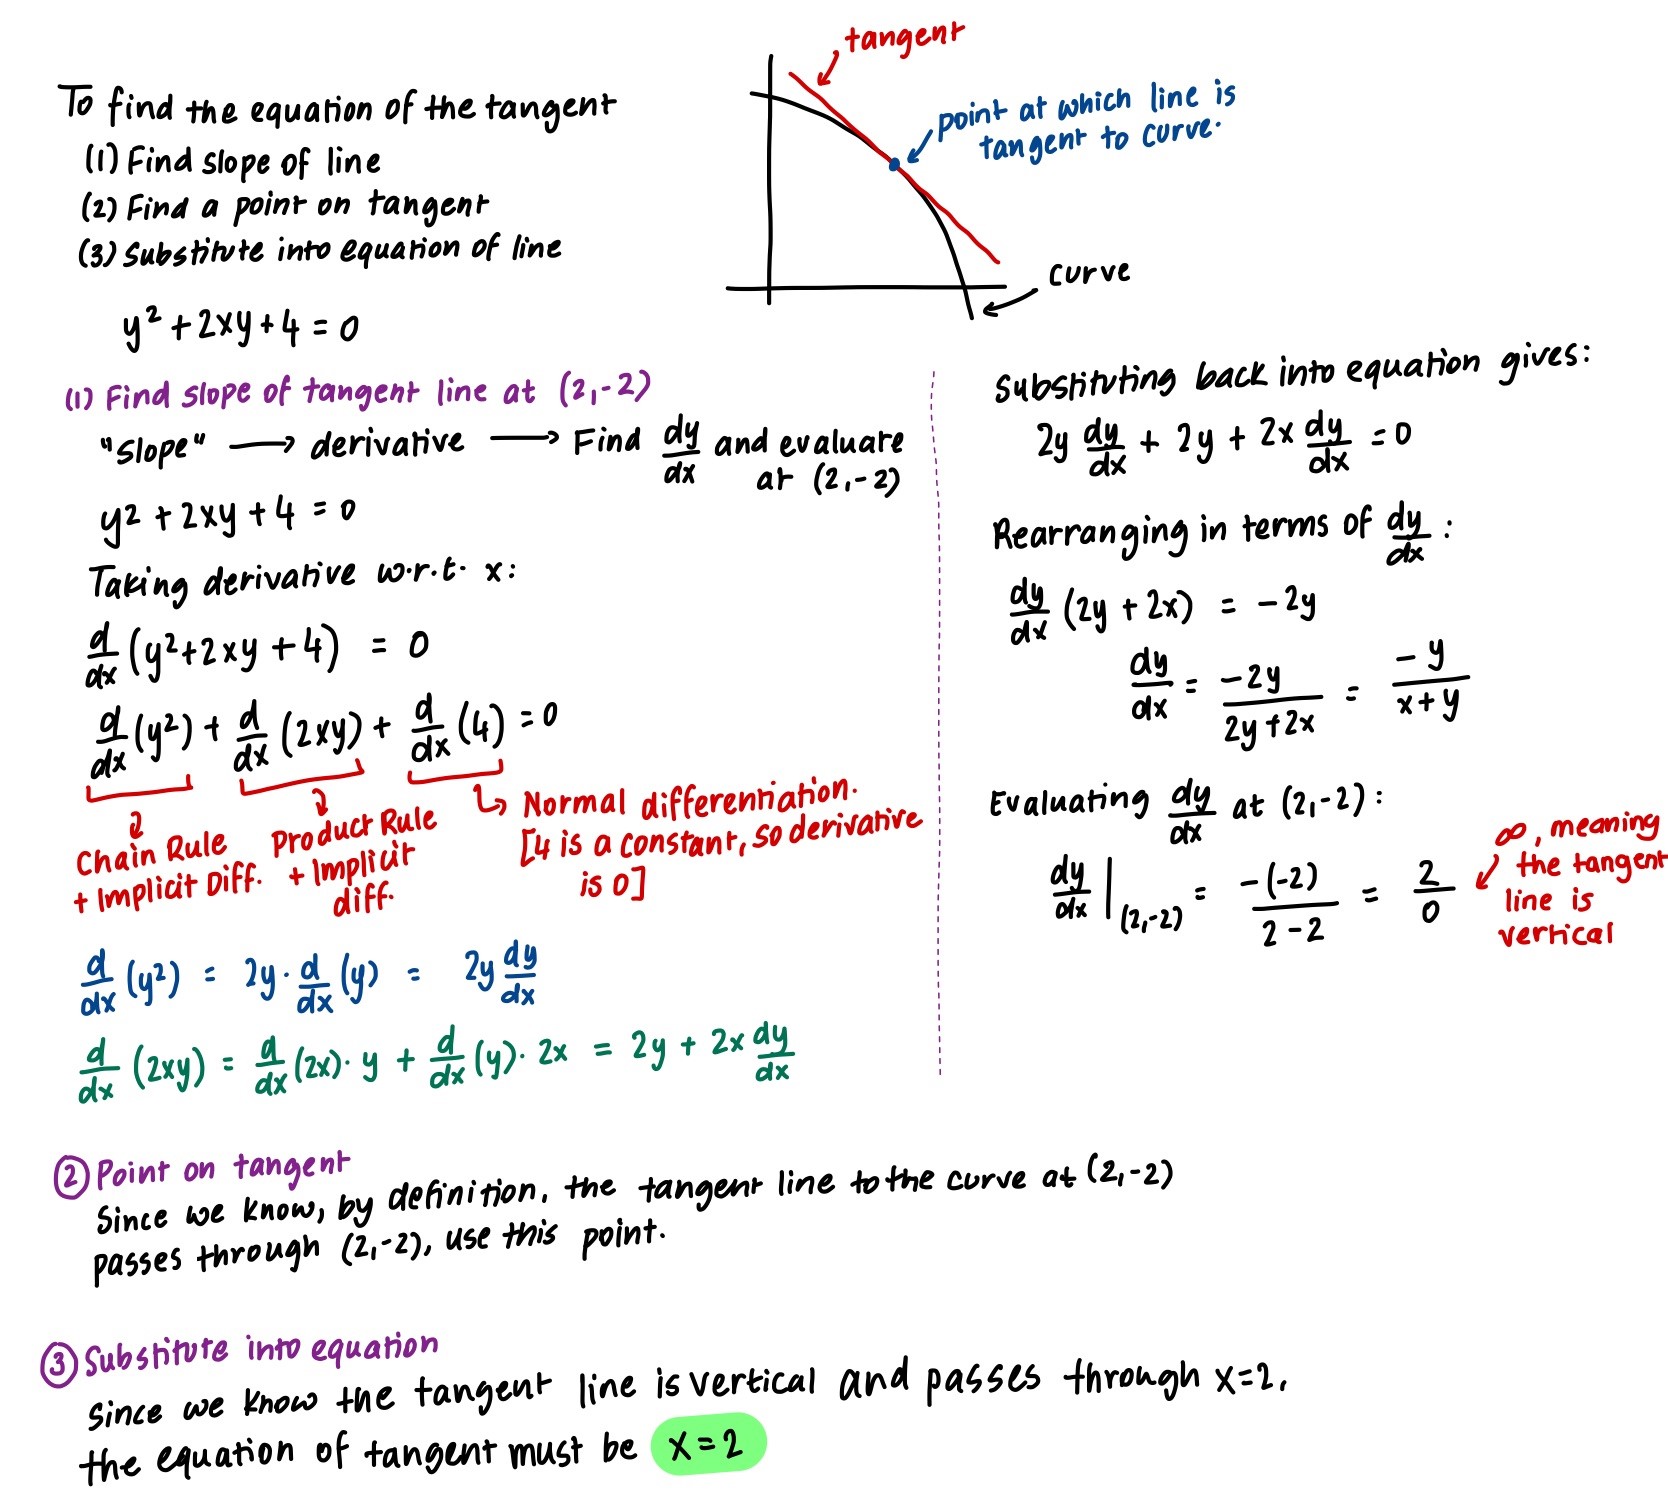 tangent
point at which line is
tangent to curve.
curve
To find the equation of the tangent
(1) Find slope of line
(2) Find a point on tangent
(3) Substitute into equation of line
y² + 2xy + 4 = 0
(1) Find slope of tangent line at (2,-2)
"slope" → derivative → Find dy/dx and evaluate
at (2,-2)
y² + 2xy + 4 = 0
Taking derivative w.r.t. x:
d/dx (y²+2xy+4) = 0
d/dx (y²) + d/dx (2xy) + d/dx (4) = 0
Chain Rule
+ Implicit Diff.
Product Rule
+ Implicit
diff.
Normal differentiation.
[4 is a constant, so derivative
is 0]
d/dx (y²) = 2y · d/dx (y) = 2y dy/dx
d/dx (2xy) = d/dx (2x) · y + d/dx (y) · 2x = 2y + 2x dy/dx
Substituting back into equation gives:
2y dy/dx + 2y + 2x dy/dx = 0
Rearranging in terms of dy/dx :
dy/dx (2y + 2x) = -2y
dy/dx = -2y/2y+2x = -y/x+y
Evaluating dy/dx at (2,-2):
dy/dx |(2,-2) = -(-2)/2-2 = 2/0
∞, meaning
the tangent
line is
vertical
② Point on tangent
Since we know, by definition, the tangent line to the curve at (2,-2)
passes through (2,-2), use this point.
③ Substitute into equation
Since we know the tangent line is vertical and passes through x=2,
the equation of tangent must be x=2